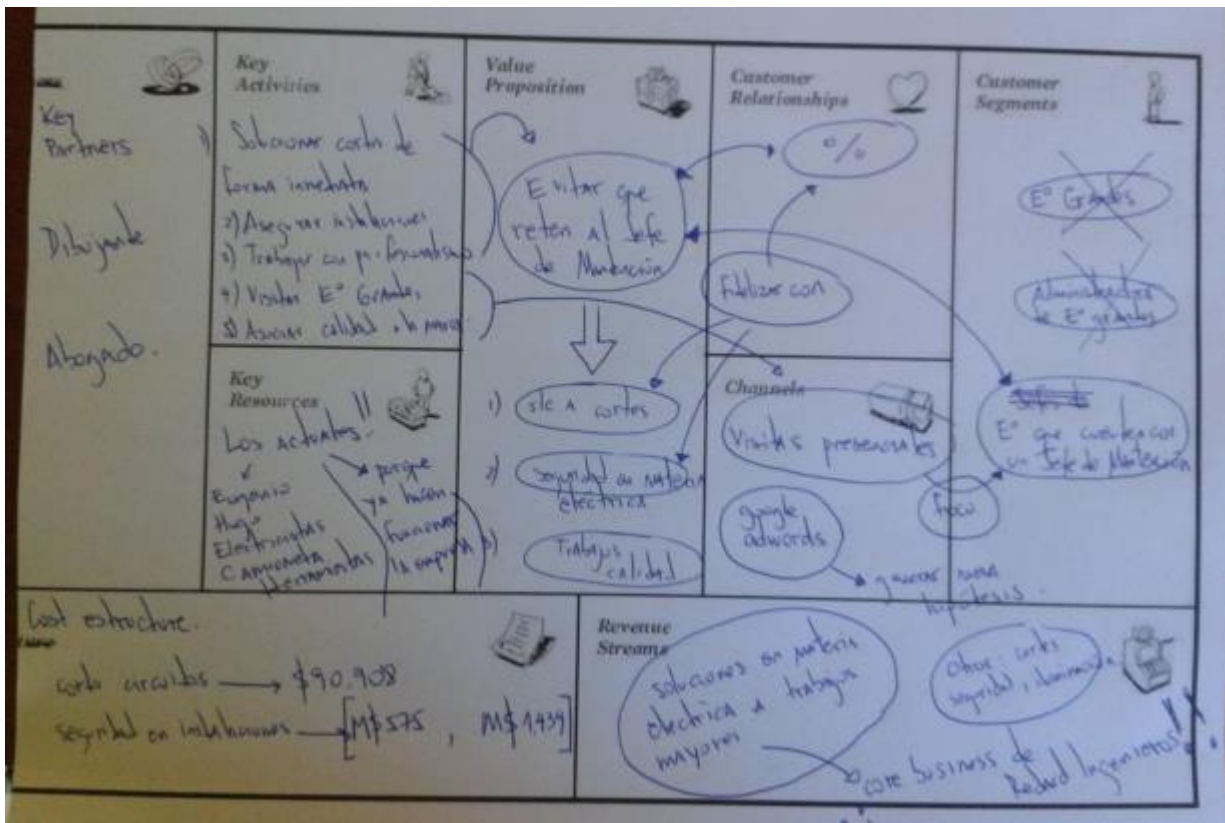 Key
Partners
Dibujante
Abogado.
Key
Activities
1) Solucionar cortes de
forma inmediata
2) Asegurar instalaciones
3) Trabajar con profesionalismo
4) Visitar Eº Grandes
5) Asociar calidad a la marca
Key
Resources
Los actuales!!
Eugenio
Hugo
Electricistas
Camioneta
Herramientas
porque
ya hacen
funcionar
la empresa
Value
Proposition
Evitar que
reten al Jefe
de Mantención
1) s/c a cortes
2) seguridad en materia
eléctrica
3) Trabajos
calidad
Customer
Relationships
%
Fidelizar con
Channels
Visitas presenciales
google
adwords
generar nueva
hipótesis.
foco
Customer
Segments
Eº Grandes
Administradores
de Eº grandes
Eº que cuenten con
un Jefe de Mantención
Cost estructure.
corto circuitos $90.908
seguridad en instalaciones [M$575 , M$1.439]
Revenue
Streams
soluciones en materia
electrica a trabajos
mayores
Otros: cortes
seguridad, iluminación
core business de
Ingenieros!!